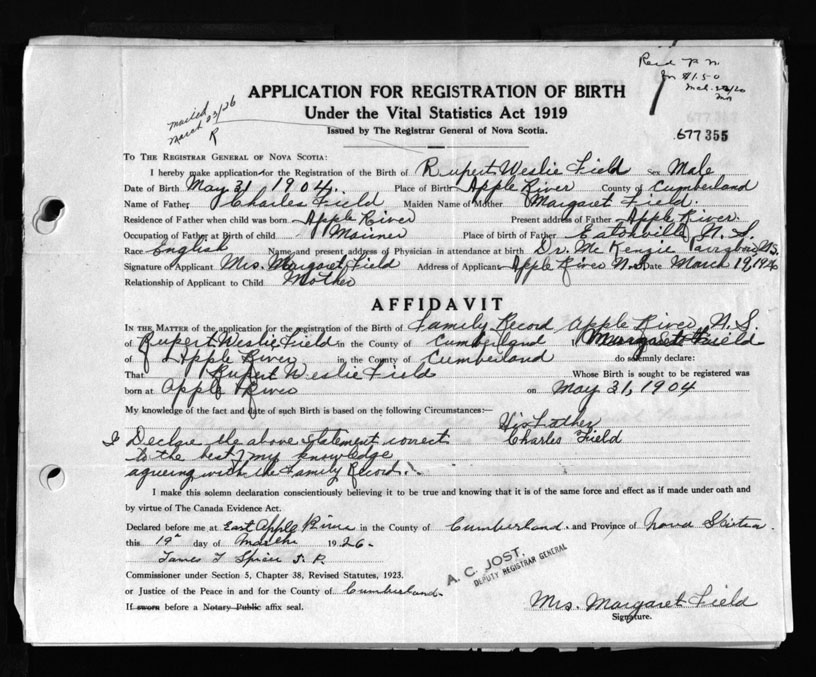 Recd P N
for $1.50
APPLICATION FOR REGISTRATION OF BIRTH
Under the Vital Statistics Act 1919
Issued by The Registrar General of Nova Scotia.
mailed
March 23/26
R
677355
TO THE REGISTRAR GENERAL OF NOVA SCOTIA:
I hereby make application for the Registration of the Birth of Rupert Weslie Field Sex Male
Date of Birth May 31 1904. Place of Birth Apple River County of Cumberland
Name of Father Charles Field Maiden Name of Mother Margaret Field.
Residence of Father when child was born Apple River Present address of Father Apple River.
Occupation of Father at Birth of child Mariner Place of birth of Father Eatonville N. S.
Race English Name and present address of Physician in attendance at birth Dr. Mc Kenzie Parrsboro N.S.
Signature of Applicant Mrs. Margaret Field Address of Applicant Apple River N.S Date March 19, 1926
Relationship of Applicant to Child Mother
AFFIDAVIT
IN THE MATTER of the application for the registration of the Birth of Family Record Apple River, N. S.
of Rupert Weslie Field in the County of Cumberland I Margaret Field
of Apple River in the County of Cumberland do solemnly declare:
That Rupert Weslie Field Whose Birth is sought to be registered was
born at Apple River on May 31, 1904
My knowledge of the fact and date of such Birth is based on the following Circumstances:—
His Father
I Declare the above statement correct Charles Field
to the best of my knowledge
agreeing with the Family Record.
I make this solemn declaration conscientiously believing it to be true and knowing that it is of the same force and effect as if made under oath and
by virtue of The Canada Evidence Act.
Declared before me at East Apple River in the County of Cumberland. and Province of Nova Scotia.
this 19th day of March 1926.
James T Spicer J. P.
Commissioner under Section 5, Chapter 38, Revised Statutes, 1923.
or Justice of the Peace in and for the County of Cumberland.
If sworn before a Notary Public affix seal.
A. C. JOST.
DEPUTY REGISTRAR GENERAL
Mrs. Margaret Field
Signature.